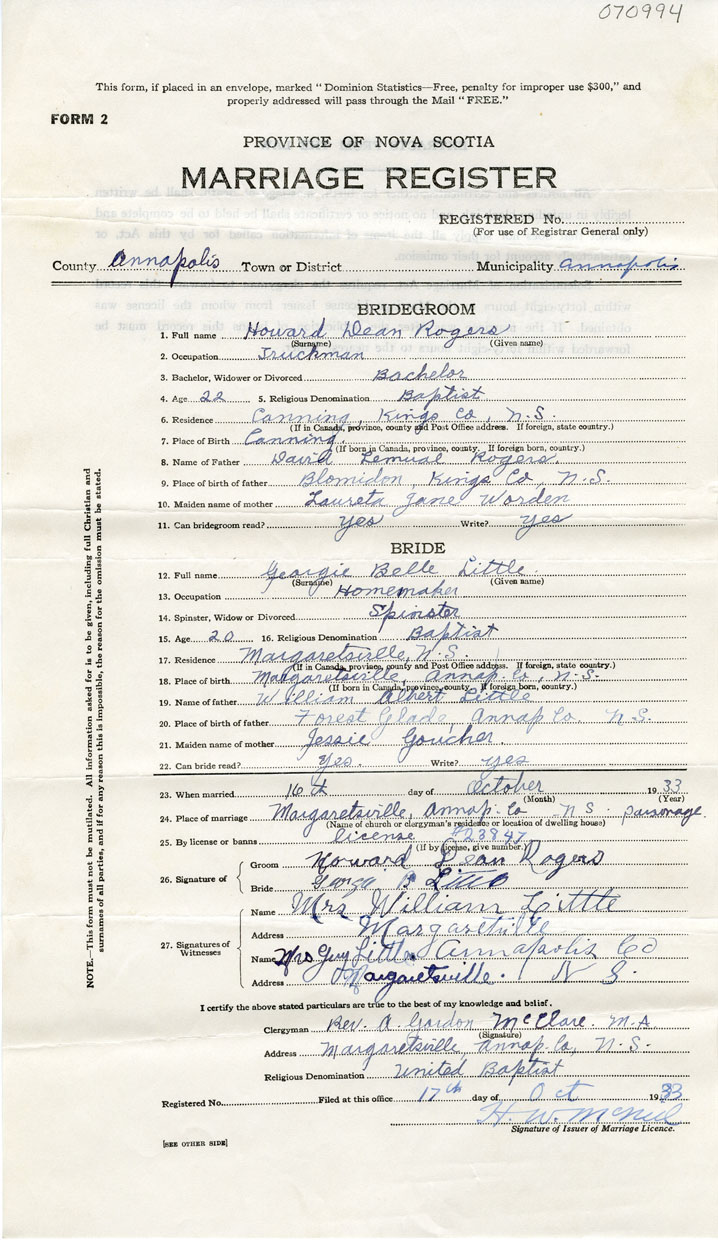 070994
This form, if placed in an envelope, marked "Dominion Statistics—Free, penalty for improper use $300," and
properly addressed will pass through the Mail "FREE."
FORM 2
PROVINCE OF NOVA SCOTIA
MARRIAGE REGISTER
REGISTERED No.
(For use of Registrar General only)
County Annapolis Town or District Municipality Annapolis
BRIDEGROOM
1. Full name Howard Dean Rogers
(Surname) (Given name)
2. Occupation Truckman
3. Bachelor, Widower or Divorced Bachelor
4. Age 22 5. Religious Denomination Baptist
6. Residence Canning, Kings Co, N.S.
(If in Canada, province, county and Post Office address. If foreign, state country.)
7. Place of Birth Canning.
(If born in Canada, province, county. If foreign born, country.)
8. Name of Father David Lemual Rogers.
9. Place of birth of father Blomidon, Kings Co, N.S.
10. Maiden name of mother Laureta Jane Worden
11. Can bridegroom read? yes Write? yes
BRIDE
12. Full name Georgie Belle Little.
(Surname) (Given name)
13. Occupation Homemaker
14. Spinster, Widow or Divorced Spinster
15. Age 20 16. Religious Denomination Baptist
17. Residence Margaretsville, N.S.
(If in Canada, province, county and Post Office address. If foreign, state country.)
18. Place of birth Margaretsville, Annap. Co, N.S.
(If born in Canada, province, county. If foreign born, country.)
19. Name of father William Albert Little
20. Place of birth of father Forest Glade, Annap Co. N.S.
21. Maiden name of mother Jessie Goucher.
22. Can bride read? yes. Write? yes
23. When married 16th day of October 1933
(Month) (Year)
24. Place of marriage Margaretsville, Annap. Co N S. parsonage.
(Name of church or clergyman's residence or location of dwelling house)
25. By license or banns license #23847
(If by license, give number)
26. Signature of
Groom Howard Dean Rogers
Bride B Little
27. Signatures of Witnesses
Name Mrs William Little
Address Margaretville
Name Mrs Guy Little Annapolis Co
Address Margaretsville. N S.
I certify the above stated particulars are true to the best of my knowledge and belief.
Clergyman Rev. A. Gordon McClare. M.A
(Signature)
Address Margaretsville, Annap. Co, N.S.
Religious Denomination United Baptist
Registered No. Filed at this office 17th day of Oct 1933
H. W. McNeil
Signature of Issuer of Marriage Licence.
[SEE OTHER SIDE]
NOTE.—This form must not be mutilated. All information asked for is to be given, including full Christian and
surnames of all parties, and if for any reason this is impossible, the reason for the omission must be stated.